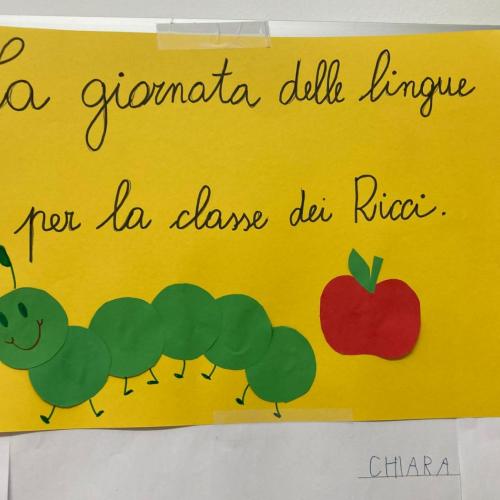 La giornata delle lingue
per la classe dei Ricci.
CHIARA